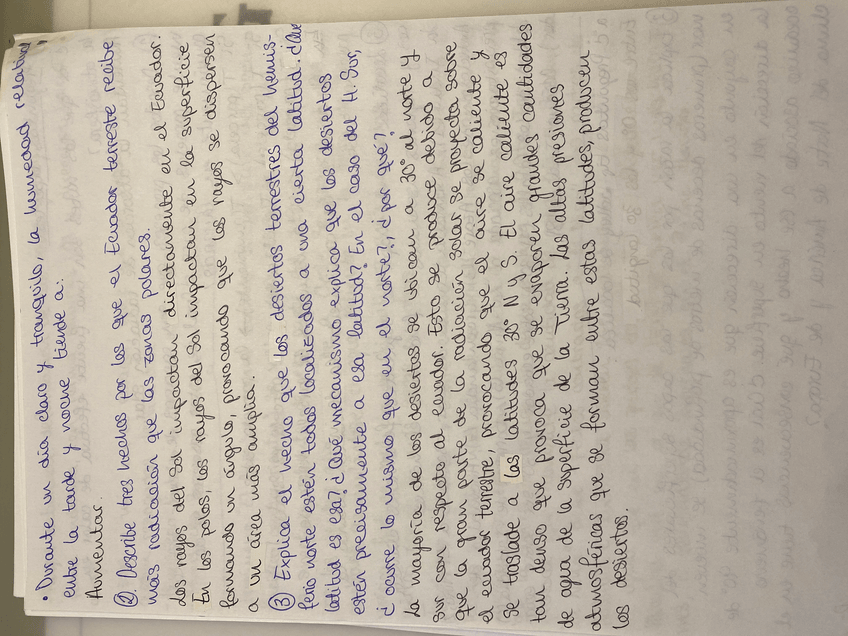 • Durante un día claro y tranquilo, la humedad relativa
entre la tarde y noche tiende a:
Aumentar.
②. Describe tres hechos por los que el Ecuador terrestre recibe
más radiación que las zonas polares.
Los rayos del Sol impactan directamente en el Ecuador.
En los polos, los rayos del Sol impactan en la superficie
formando un ángulo, provocando que los rayos se dispersen
a un área más amplia.
③ Explica el hecho que los desiertos terrestres del hemis-
ferio norte estén todos localizados a una cierta latitud. ¿Qué
latitud es esa? ¿Qué mecanismo explica que los desiertos
estén precisamente a esa latitud? En el caso del H. Sur,
¿ocurre lo mismo que en el norte?, ¿por qué?
La mayoría de los desiertos se ubican a 30° al norte y
sur con respecto al ecuador. Esto se produce debido a
que la gran parte de la radiación solar se proyecta sobre
el ecuador terrestre, provocando que el aire se caliente y
se traslade a las latitudes 30° N y S. El aire caliente es
tan denso que provoca que se evaporen grandes cantidades
de agua de la superficie de la Tierra. Las altas presiones
atmosféricas que se forman entre estas latitudes, producen
los desiertos.